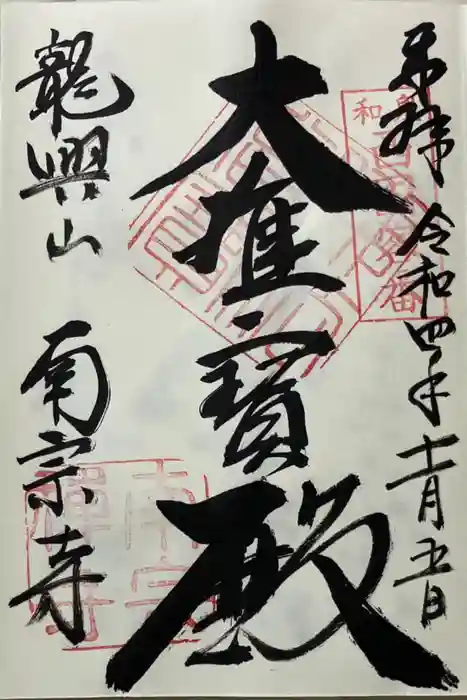 奉拝 令和四年十一月五日
大雄寶殿
龍興山 南宗寺
南宗禅寺